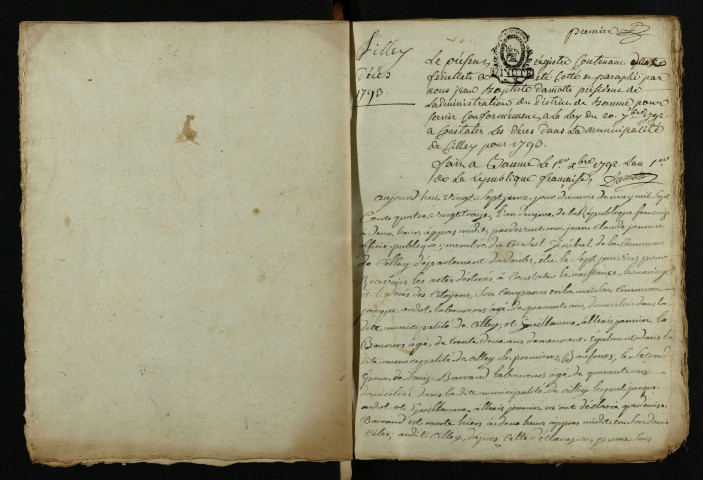 premier
Silley
décès
1793.
Le présent registre Contenant
feuillets a été Cotté et paraphé par
nous jean Baptiste damotte président de
L'administration du district de Baume pour
servir Conformément a la Loy du 20. 7bre 1792
a Constater Les décès dans La municipalité
de Silley pour 1793.
fait a Baume Le 1er Xbre 1792. L'an 1er
de La république française, Damotte
aujourd'huy vingt sept jour du mois de mil sept
Cents quatre vingt treize, L'an deuxième de la République française
a deux heures appres midit, pardevant moi jean claude jannin
officier publique, membre du Conseil Général de la Commune
de Silley département du doubs, élu le sept pour
Recevoir les actes destinés à Constater la naissance, le mariage
et le décès des Citoyens, sont Comparus en la maison Commune
jacque andot laboureur âgé de quarante ans, domicilié dans la
dite municipalité de Silley, et Guillaume allexis jannin La
Boureur âgé de trente deux ans demeurant également dans la
dite municipalité de Silley le premier, Beaufrere, le second
Epoux, de Deniz Barrand laboureur âgé de quarante ans
domicilié dans la dite municipalité de Silley lequel jacque
andot et Guillaume allexis jannin m'ont déclaré que denise
Barrand est morte hier a deux heures appres midit en son domi
Cile, audit Silley, d'apres Cette déclaration, je me suis